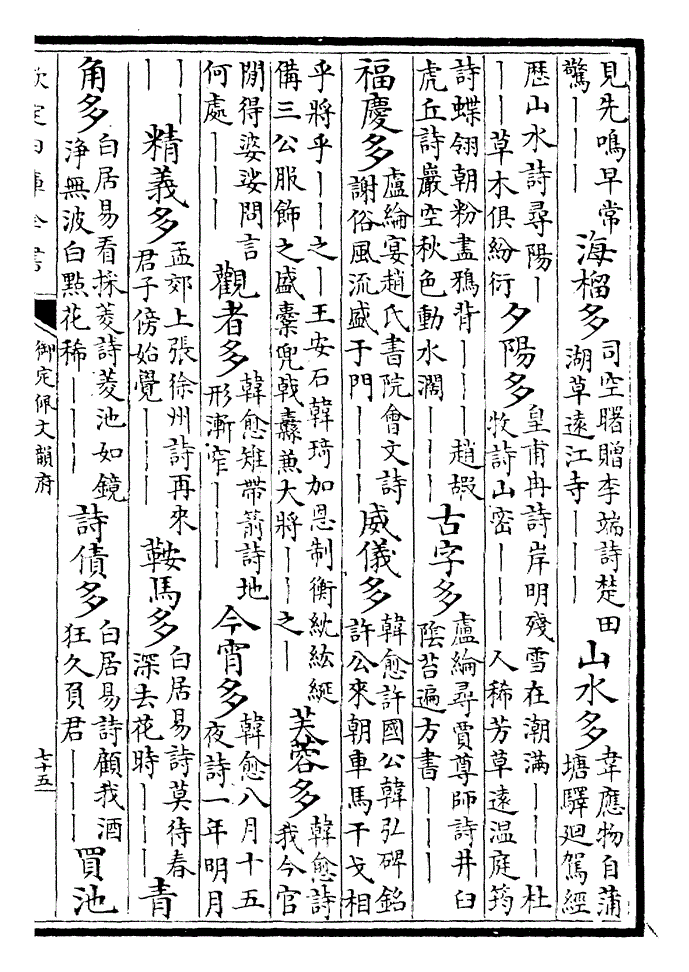 見先鳴早常
驚｜｜｜
海榴多
司空曙贈李端詩楚田
湖草遠江寺｜｜｜
山水多
韋應物自蒲
塘驛迴駕經
歴山水詩尋陽｜
｜｜草木俱紛衍
夕陽多
皇甫冉詩岸明殘雪在潮滿｜｜｜杜
牧詩山密｜｜｜人稀芳草遠温庭筠
詩蝶翎朝粉盡鴉背｜｜｜趙嘏
虎丘詩巖空秋色動水濶｜｜｜
古字多
盧綸尋賈尊師詩井臼
陰苔遍方書｜｜｜
福慶多
盧綸宴趙氏書院會文詩
謝俗風流盛于門｜｜｜
威儀多
韓愈許國公韓弘碑銘
許公來朝車馬干戈相
乎將乎｜｜之｜王安石韓琦加恩制衡紞紘綖
備三公服飾之盛櫜兜戟纛兼大將｜｜之｜
芙蓉多
韓愈詩
我今官
閒得婆娑問言
何處｜｜｜
觀者多
韓愈雉帶箭詩地
形漸窄｜｜｜
今宵多
韓愈八月十五
夜詩一年明月
｜｜
｜
精義多
孟郊上張徐州詩再來
君子傍始覺｜｜｜
鞍馬多
白居易詩莫待春
深去花時｜｜｜
青
角多
白居易看採菱詩菱池如鏡
浄無波白點花稀｜｜｜
詩債多
白居易詩顧我酒
狂久負君｜｜｜
買池
欽定四庫全書
御定佩文韻府
七十五